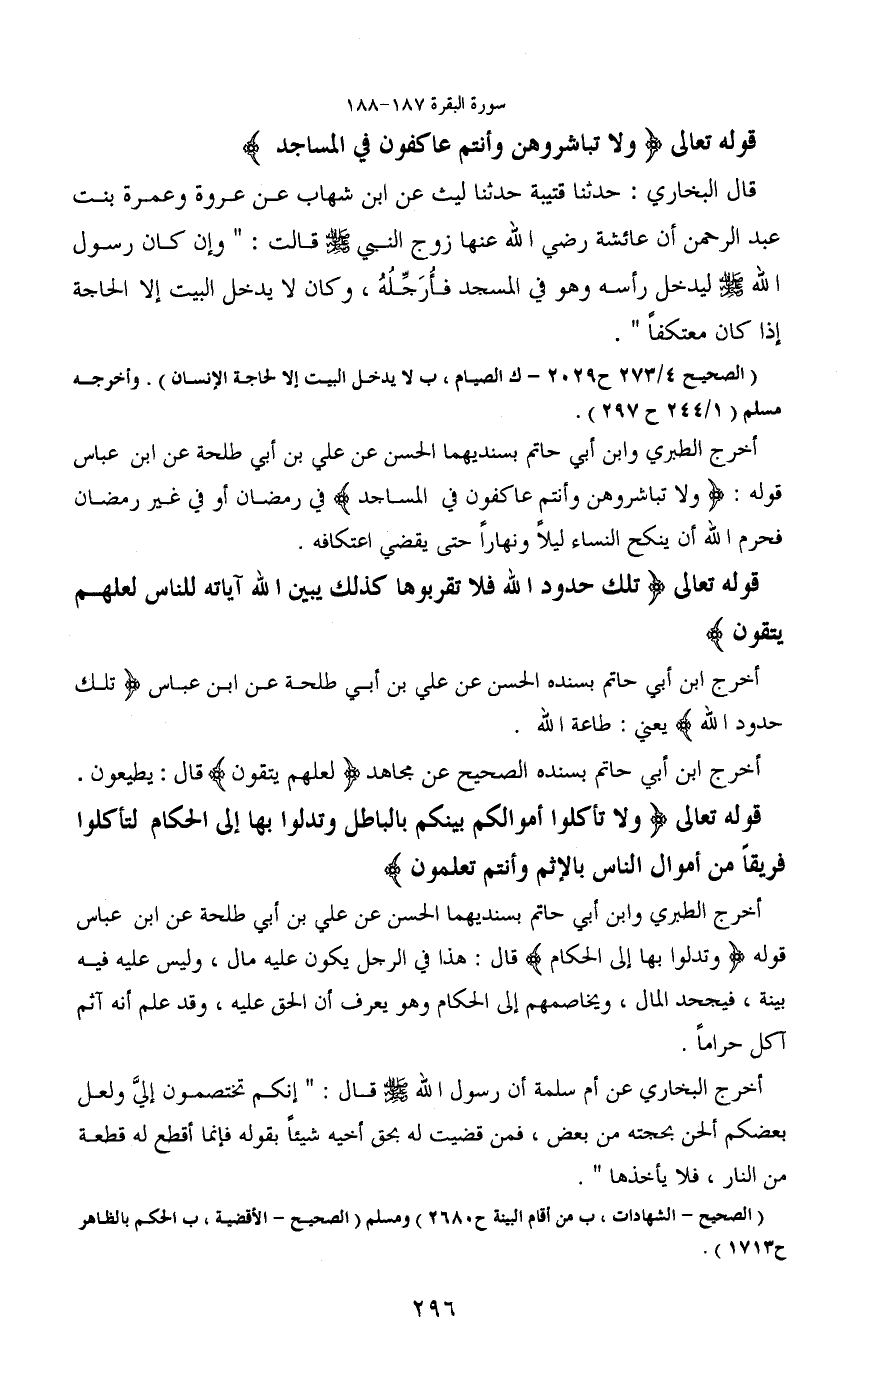 سورة البقرة ١٨٧-١٨٨
قوله تعالى ﴿ ولا تباشروهن وأنتم عاكفون في المساجد ﴾
قال البخاري : حدثنا قتيبة حدثنا ليث عن ابن شهاب عن عروة وعمرة بنت
عبد الرحمن أن عائشة رضي الله عنها زوج النبي ﷺ قالت : " وإن كان رسول
الله ﷺ ليدخل رأسه وهو في المسجد فأُرَجِّلُهُ ، وكان لا يدخل البيت إلا الحاجة
إذا كان معتكفاً " .
( الصحيح ٢٧٣/٤ ح٢٠٢٩ - ك الصيام ، ب لا يدخل البيت إلا لحاجة الإنسان ) . وأخرجه
مسلم ( ٢٤٤/١ ح ٢٩٧ ) .
أخرج الطبري وابن أبي حاتم بسنديهما الحسن عن علي بن أبي طلحة عن ابن عباس
قوله : ﴿ ولا تباشروهن وأنتم عاكفون في المساجد ﴾ في رمضان أو في غير رمضان
فحرم الله أن ينكح النساء ليلاً ونهاراً حتى يقضي اعتكافه .
قوله تعالى ﴿ تلك حدود الله فلا تقربوها كذلك يبين الله آياته للناس لعلهم
يتقون ﴾
أخرج ابن أبي حاتم بسنده الحسن عن علي بن أبي طلحة عن ابن عباس ﴿ تلك
حدود الله ﴾ يعني : طاعة الله .
أخرج ابن أبي حاتم بسنده الصحيح عن مجاهد ﴿ لعلهم يتقون ﴾ قال : يطيعون .
قوله تعالى ﴿ ولا تأكلوا أموالكم بينكم بالباطل وتدلوا بها إلى الحكام لتأكلوا
فريقاً من أموال الناس بالإثم وأنتم تعلمون ﴾
أخرج الطبري وابن أبي حاتم بسنديهما الحسن عن علي بن أبي طلحة عن ابن عباس
قوله ﴿ وتدلوا بها إلى الحكام ﴾ قال : هذا في الرجل يكون عليه مال ، وليس عليه فيه
بينة ، فيجحد المال ، ويخاصمهم إلى الحكام وهو يعرف أن الحق عليه ، وقد علم أنه آثم
آكل حراماً .
أخرج البخاري عن أم سلمة أن رسول الله ﷺ قال : " إنكم تختصمون إليَّ ولعل
بعضكم ألحن بحجته من بعض ، فمن قضيت له بحق أخيه شيئاً بقوله فإنما أقطع له قطعة
من النار ، فلا يأخذها " .
( الصحيح - الشهادات ، ب من أقام البينة ح٢٦٨٠ ) ومسلم ( الصحيح - الأقضية ، ب الحكم بالظاهر
ح١٧١٣ ) .
٢٩٦